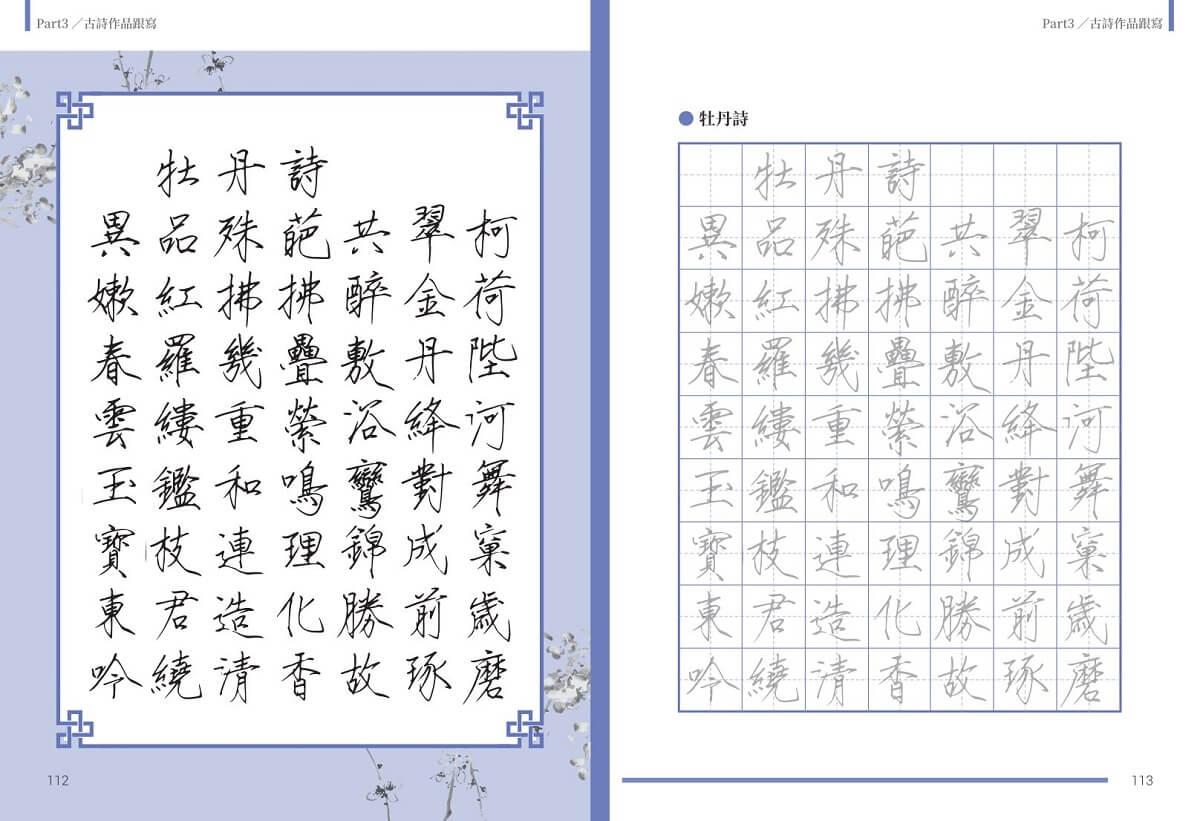 Part3／古詩作品跟寫
牡丹詩
異品殊葩共翠柯
嫩紅拂拂醉金荷
春羅幾疊敷丹陛
雲縷重縈浴絳河
玉鑑和鳴鸞對舞
寶枝連理錦成窠
東君造化勝前歲
吟繞清香故琢磨
112
Part3／古詩作品跟寫
牡丹詩
牡丹詩
異品殊葩共翠柯
嫩紅拂拂醉金荷
春羅幾疊敷丹陛
雲縷重縈浴絳河
玉鑑和鳴鸞對舞
寶枝連理錦成窠
東君造化勝前歲
吟繞清香故琢磨
113